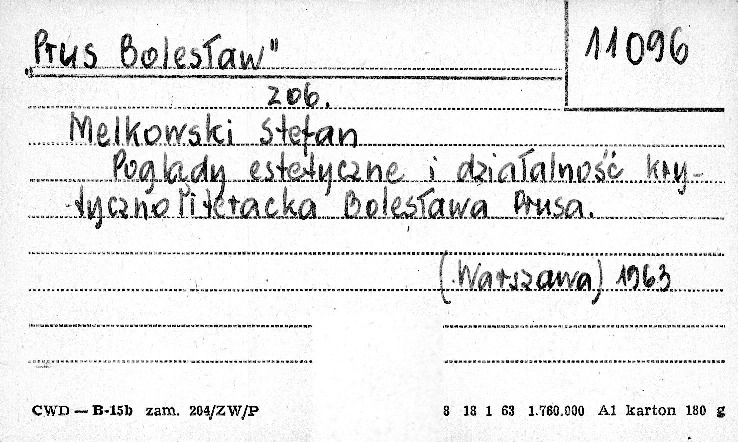 "Prus Bolesław"
11096
zob.
Melkowski Stefan
Poglądy estetyczne i działalność kry-
tycznoliteracka Bolesława Prusa.
(Warszawa) 1963
CWD — B-15b zam. 204/ZW/P
8 18 1 63 1.760.000 A1 karton 180 g